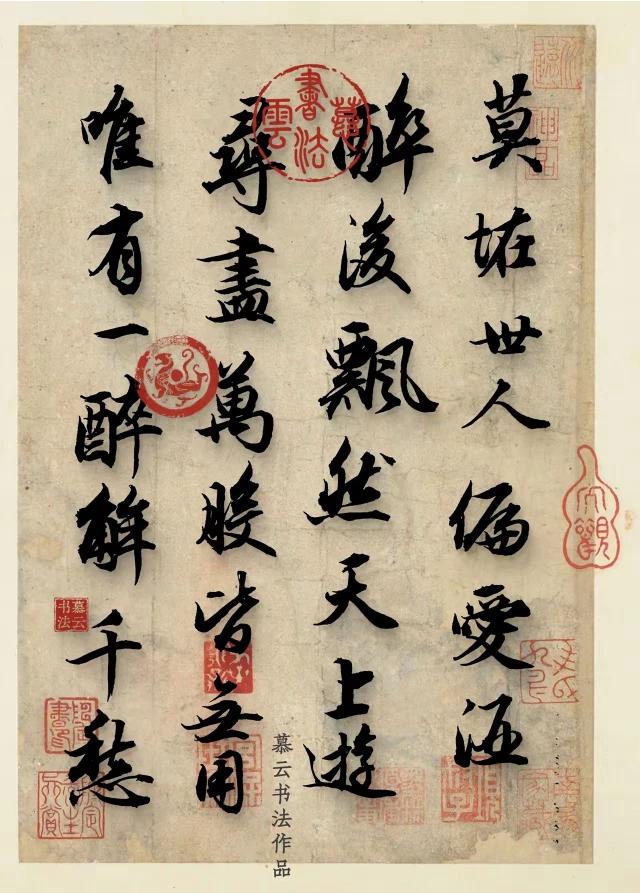 莫恠世人偏愛酒
醉後飄然天上遊
尋盡萬般皆無用
唯有一醉解千愁
慕雲書法
慕云书法
慕云书法作品
大觀